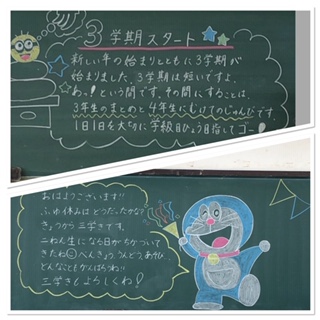 ３学期スタート
新しい年の始まりとともに3学期が
始まりました。3学期は短いですよ。
あっ！という間です。その間にすることは、
3年生のまとめと4年生にむけてのじゅんびです。
1日1日を大切に学級目ひょう目指してゴー！
おはようございます!!
ふゆ休みはどうだったかな？
きょうから三学きです。
二ねん生になる日がちかづいて
きたね べんきょう、うんどう、あそび
どんなこともがんばろうね!!
三学きもよろしくね！